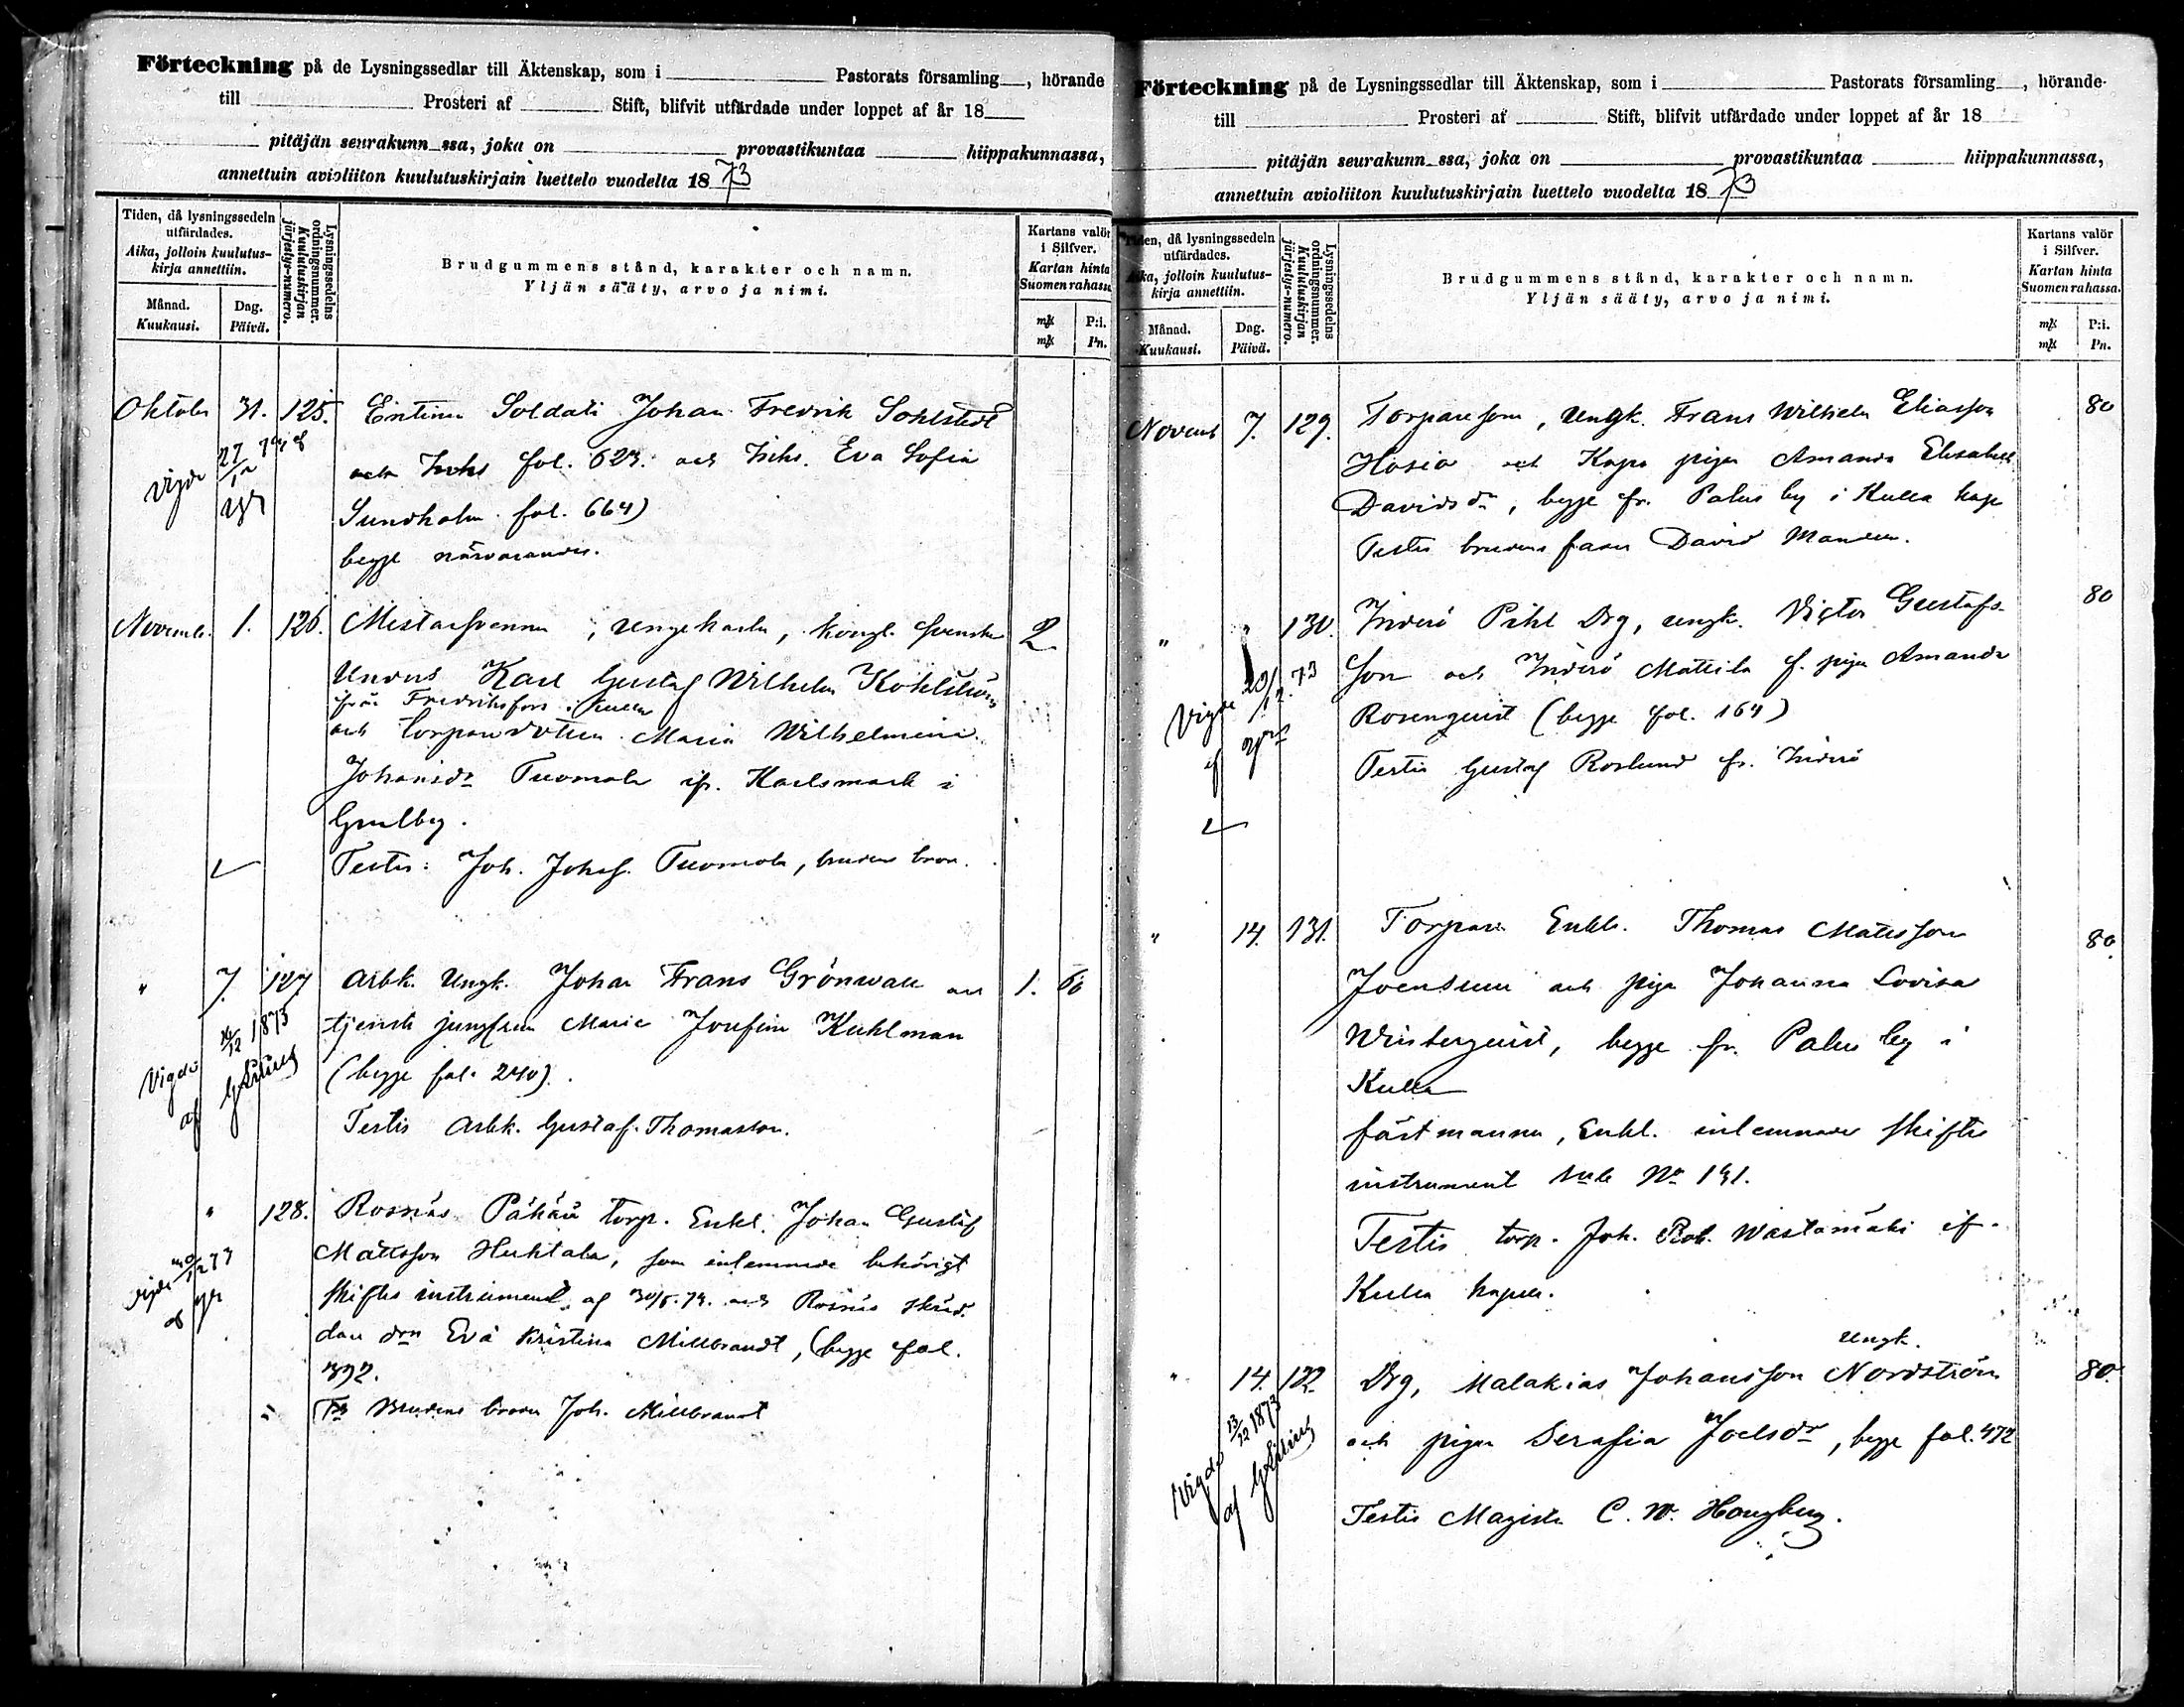 Förteckning på de Lysningssedlar till Äktenskap, som i Pastorats församling, hörande
till Prosteri af Stift, blifvit utfärdade under loppet af år 18
pitäjän seurakunn ssa, joka on provastikuntaa hiippakunnassa,
annettuin avioliiton kuulutuskirjain luettelo vuodelta 1873
Tiden, då lysningssedeln utfärdades.
Aika, jolloin kuulutus-kirja annettiin.
Månad. Kuukausi.
Dag. Päivä.
Lysningssedelns ordningsnummer.
Kuulutuskirjan järjestys-numero.
Brudgummens stånd, karakter och namn.
Yljän sääty, arvo ja nimi.
Kartans valör i Silfver.
Kartan hinta Suomen rahassa
mk P:i.
mk Pn.
Oktober 31. 125. Soldati Johan Fredrik Sohlstedt
fol. 623. och Inhs. Eva Sofia
Sundholm fol. 664)
begge närvarande.
vigde 27/12 73 af
Novemb. 1. 126. Mästarsvennen, ungekarlen, kongl. svenska 2
Karl Gustaf Wilhelm Kohlström
från Fredriksfors i Kulla
och torparedottren Maria Wilhelmina
Johansdr Tuomola ifr. Karlsmark i
Grulby.
Testis: Joh. Johs. Tuomola, brudens bror.
" 7. 127 Arbk. Ungk. Johan Frans Grönwall och 1. 60
tjenste jungfrun Maria Josefina Kuhlman
(begge fol. 240).
Testis Arbk. Gustaf Thomasson.
Vigde 26/12 1873
af
" 128. Rosnäs Påhåå torp. Enkl. Johan Gustaf
Mattsson Huhtala, som inlemnade behörigt
skiftes instrument af 30/5.73. och Rosnäs
dr Eva Kristina Millbrandt, (begge fol.
392.
Ts Brudens broder Joh. Millbrandt
vigde 12 73
af
Förteckning på de Lysningssedlar till Äktenskap, som i Pastorats församling, hörande
till Prosteri af Stift, blifvit utfärdade under loppet af år 18
pitäjän seurakunn ssa, joka on provastikuntaa hiippakunnassa,
annettuin avioliiton kuulutuskirjain luettelo vuodelta 1873
Tiden, då lysningssedeln utfärdades.
Aika, jolloin kuulutus-kirja annettiin.
Månad. Kuukausi.
Dag. Päivä.
Lysningssedelns ordningsnummer.
Kuulutuskirjan järjestys-numero.
Brudgummens stånd, karakter och namn.
Yljän sääty, arvo ja nimi.
Kartans valör i Silfver.
Kartan hinta Suomen rahassa.
mk P:i.
mk Pn.
Novemb 7. 129. Torpareson, ungk. Frans Wilhelm Eliasson 80
Hosio och piga Amanda Elisabet
Davidsdr, begge fr. Palus by i Kulla kap
Testis brudens fader David
" " 130. Inderö Pihl Drg, ungk. Victor Gustafs- 80
son och Inderö Mattila f. piga Amanda
Rosenquist (begge fol. 164)
Testis Gustaf Roslund fr. Inderö
Vigde 20/12.73
af
" 14. 131. Torpare Enkl. Thomas Mattsson 80.
Joensuu och piga Johanna Lovisa
Winterquist, begge fr. Palus by i
Kulla
fästmannen, Enkl. inlemnade skiftes
instrument sub No 131.
Testis torp. Joh. Rob. Wästämäki if.
Kulla kapell.
" 14. 132. Drg, Malakias Johansson ungk. Nordström 80.
och pigan Serafia Joelsdr, begge fol. 472
Testis Magister C. W.
Vigde 13/12 1873
af